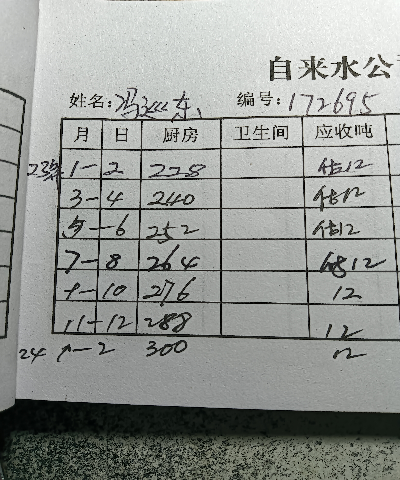 自来水公
姓名: 冯 东 编号: 172695
月 日 厨房 卫生间 应收吨
23年 1-2 228 估12
3-4 240 估12
5-6 252 估12
7-8 264 估12
9-10 276 12
11-12 288 12
24 1-2 300 12